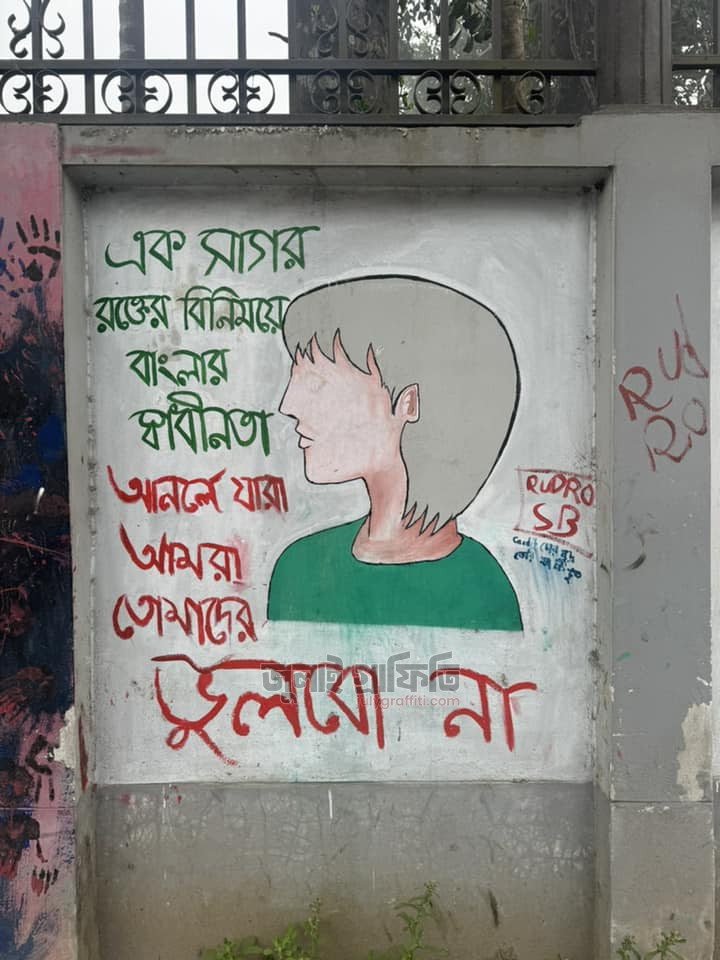 এক সাগর
রক্তের বিনিময়ে
বাংলার
স্বাধীনতা
আনলে যারা
আমরা
তোমাদের
ভুলবো না
জুলাই গ্রাফিতি
julygraffiti.com
RUDRO
SB
RUD
RO